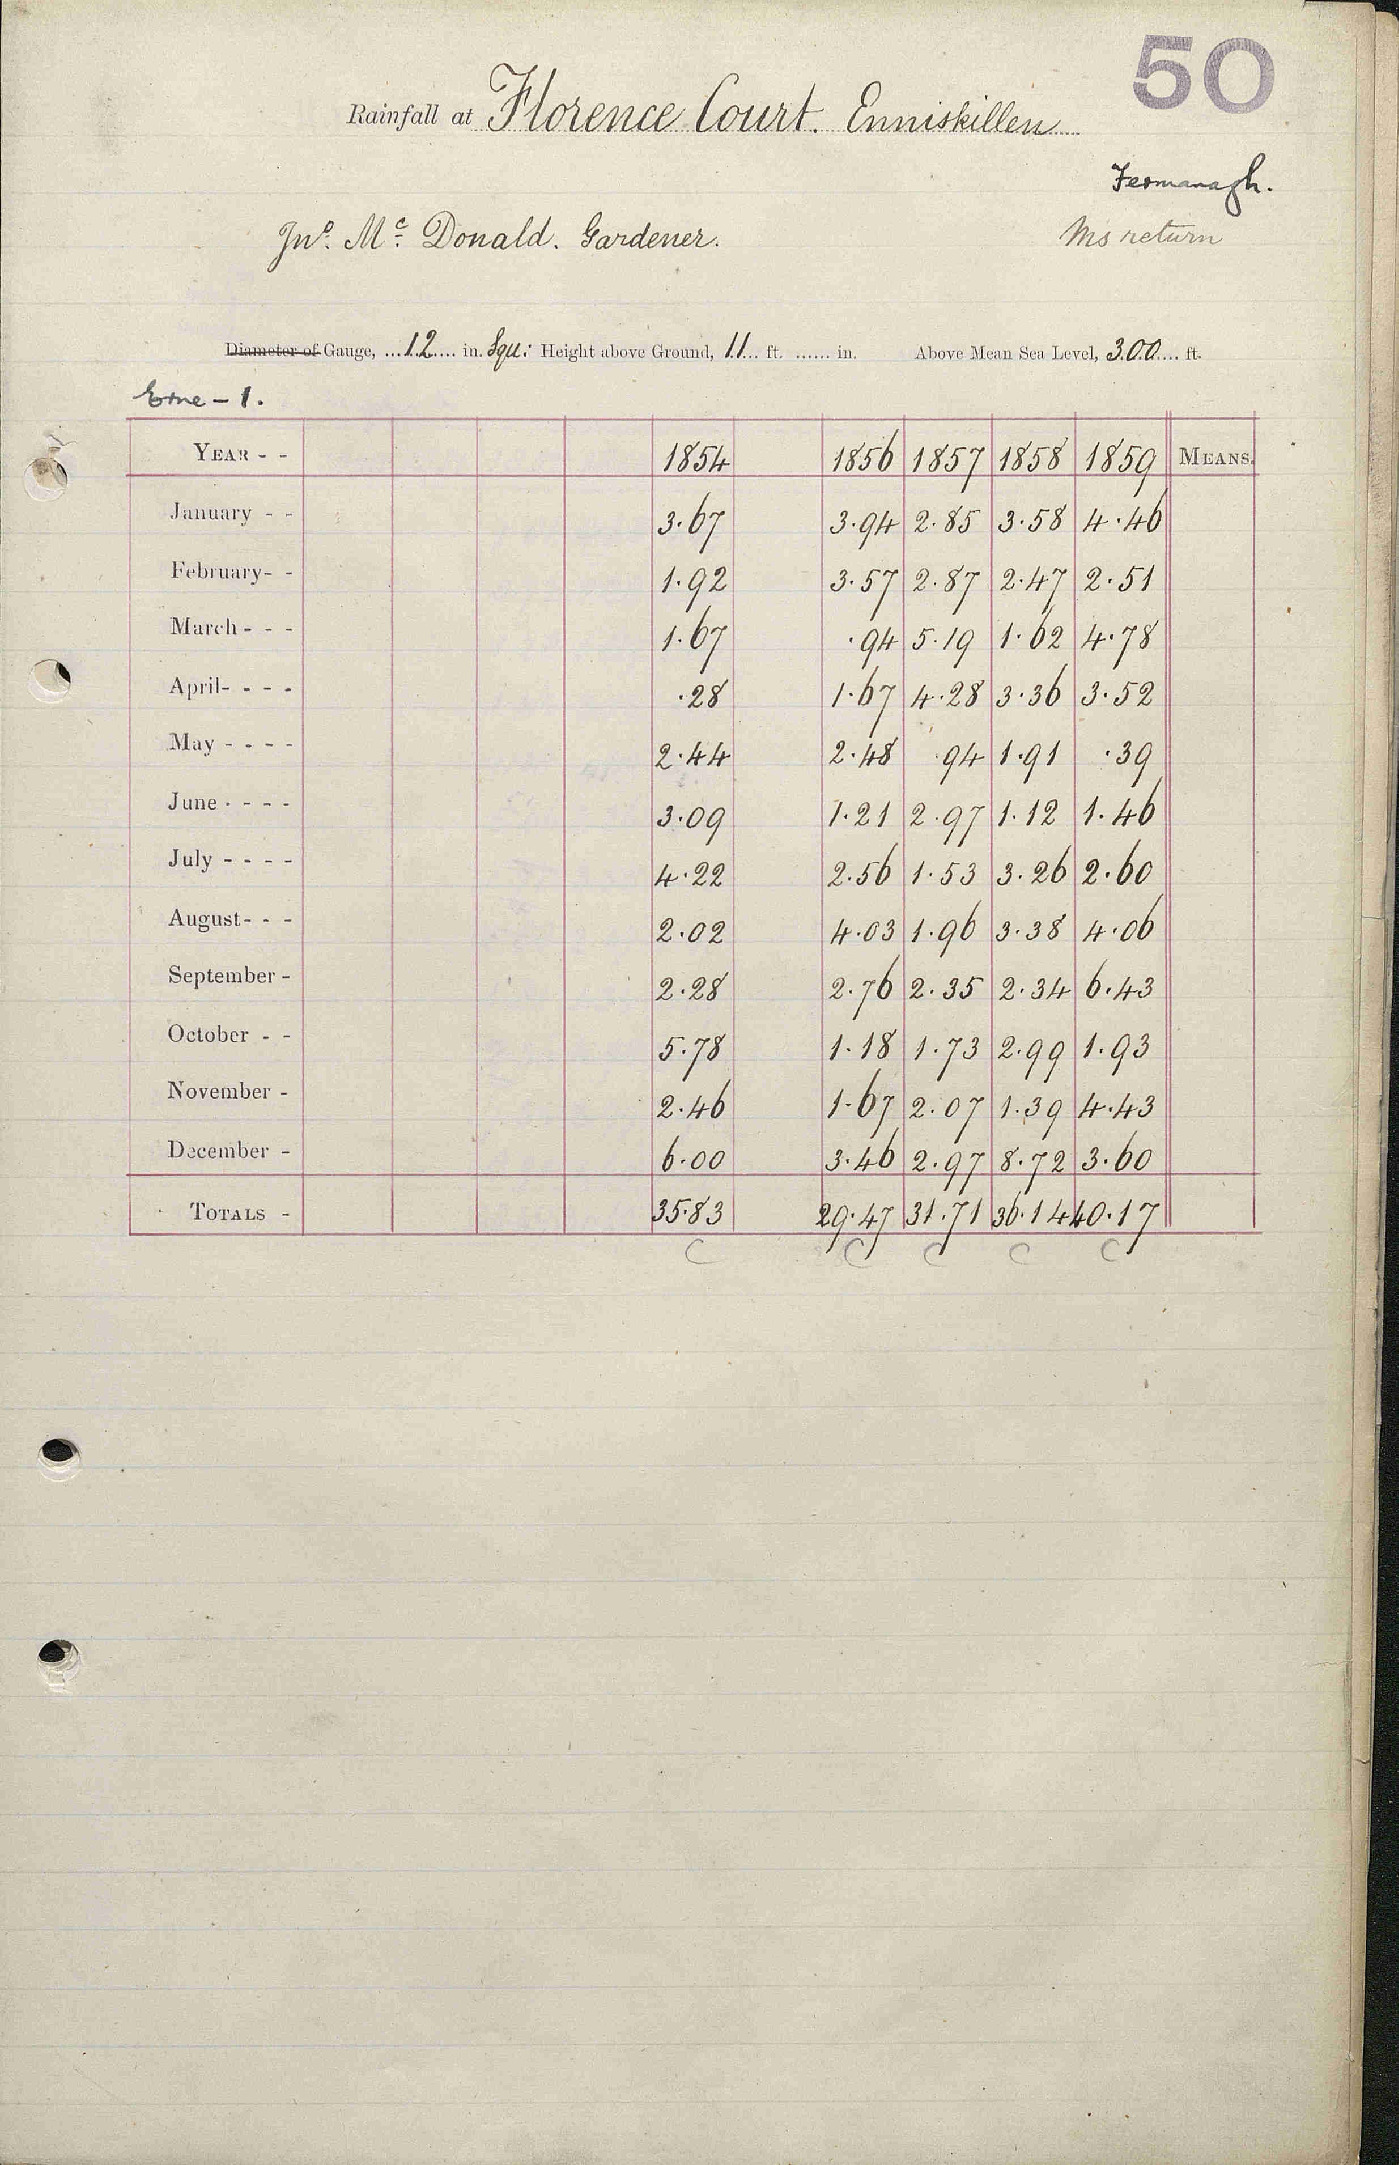 50
Rainfall at Florence Court. Enniskillen
Fermanagh.
Jno. Mc. Donald. Gardener. Ms return
Diameter of Gauge, ...12..... in. Squ: Height above Ground, 11... ft. ...... in. Above Mean Sea Level, 300.... ft.
Erne - 1.
YEAR - - 1854 1856 1857 1858 1859 MEANS.
January - - 3.67 3.94 2.85 3.58 4.46
February- - 1.92 3.57 2.87 2.47 2.51
March - - - 1.67 .94 5.19 1.62 4.78
April- - - - .28 1.67 4.28 3.36 3.52
May - - - - 2.44 2.48 .94 1.91 .39
June - - - - 3.09 1.21 2.97 1.12 1.46
July - - - - 4.22 2.56 1.53 3.26 2.60
August- - - 2.02 4.03 1.96 3.38 4.06
September - 2.28 2.76 2.35 2.34 6.43
October - - 5.78 1.18 1.73 2.99 1.93
November - 2.46 1.67 2.07 1.39 4.43
December - 6.00 3.46 2.97 8.72 3.60
TOTALS - 35.83 29.47 31.71 36.14 40.17
C C C C C